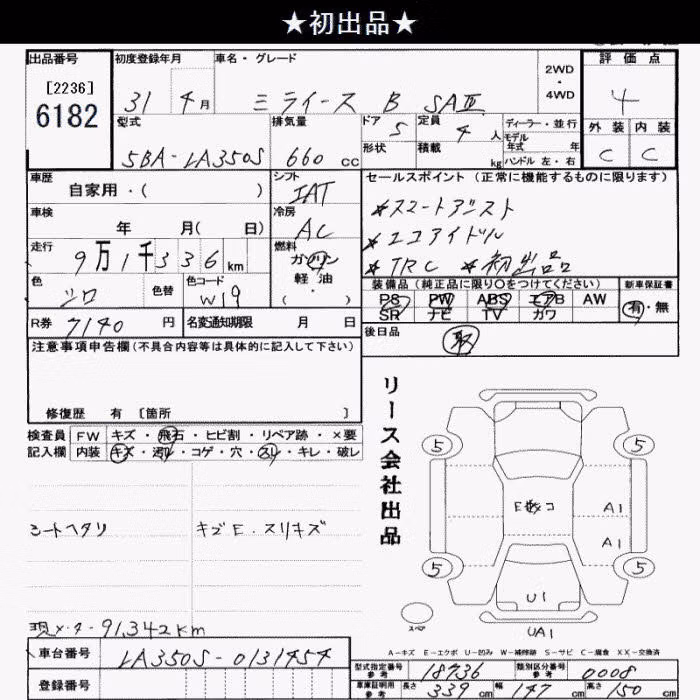 ★初出品★
出品番号 初度登録年月 車名・グレード 2WD・4WD 評価点
[2236]
6182
31 4月 ミライース B SAⅢ 4
型式 排気量 ドア 5 定員 4 人 ディーラー・並行 外装 内装
形状 積載 kg モデル年式 年 ハンドル 左・右
5BA-LA350S 660 cc C C
車歴 シフト セールスポイント (正常に機能するものに限ります)
自家用・( ) IAT
車検 冷房
年 月( 日) AC
走行 燃料
9万1千336km ガソリン
軽油
・( )
*スマートアシスト
*エコアイドル
*TRC *初出品
色 色替 色コード
シロ W19
装備品 (純正品に限り○をつけてください) 新車保証書
PS PW ABS エアB AW 有・無
SR ナビ TV カワ
R券 7140 円 名変通知期限 月 日
後日品 取
注意事項申告欄(不具合内容等は具体的に記入して下さい)
修復歴 有 [箇所 ]
リース会社出品
検査員 FW キズ・飛石・ヒビ割・リペア跡・×要
記入欄 内装 キズ・汚レ・コゲ・穴・スレ・キレ・破レ
シートヘタリ キズE.スリキズ
現メーター91,342km
5 5
E数コ A1
A1
5 5
U1
スペア UA1
A-キズ E-エクボ U-凹み W-補修跡 S-サビ C-腐食 XX-交換済
車台番号 LA350S-0131454
登録番号
型式指定番号 参考 18736 類別区分番号 参考 0008
車庫証明用 参考 長さ 339 cm 幅 147 cm 高さ 150 cm